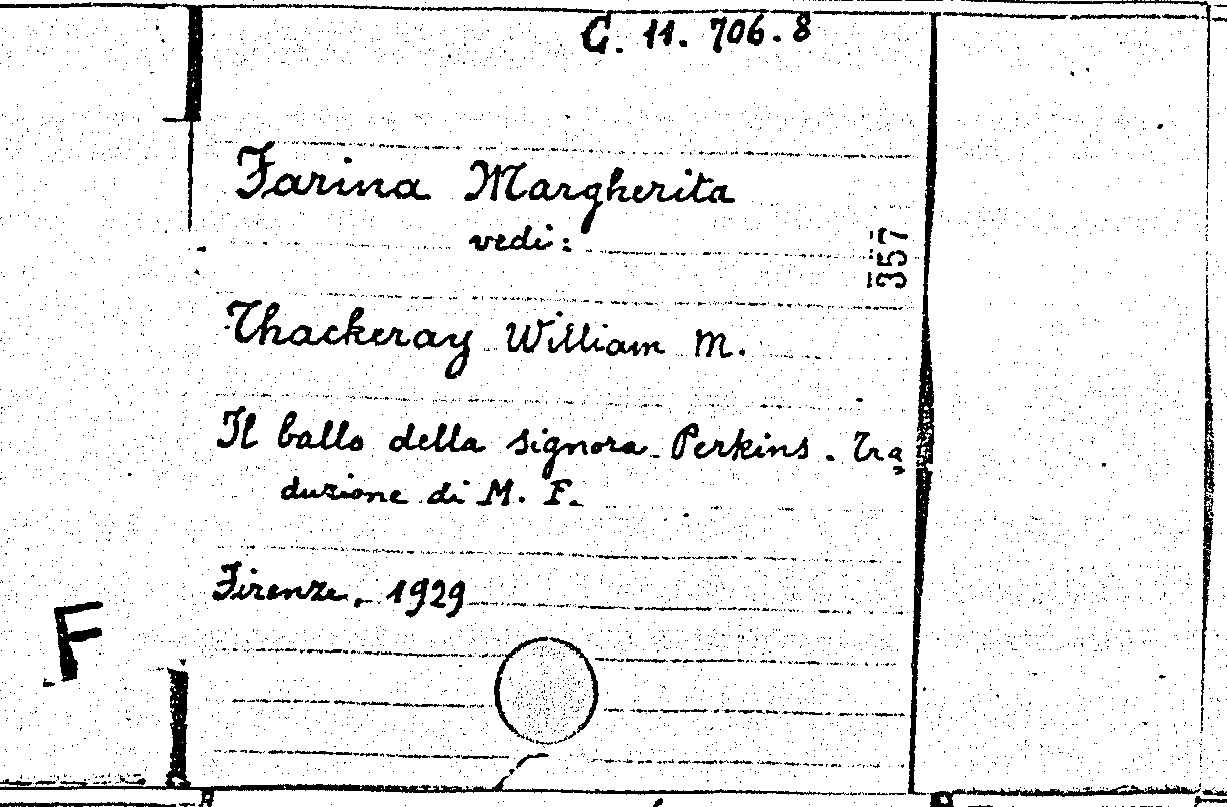 G. 11. 706. 8
Farina Margherita
vedi:
357
Thackeray William M.
Il ballo della signora Perkins. Tra
duzione di M. F.
Firenze, 1929
F